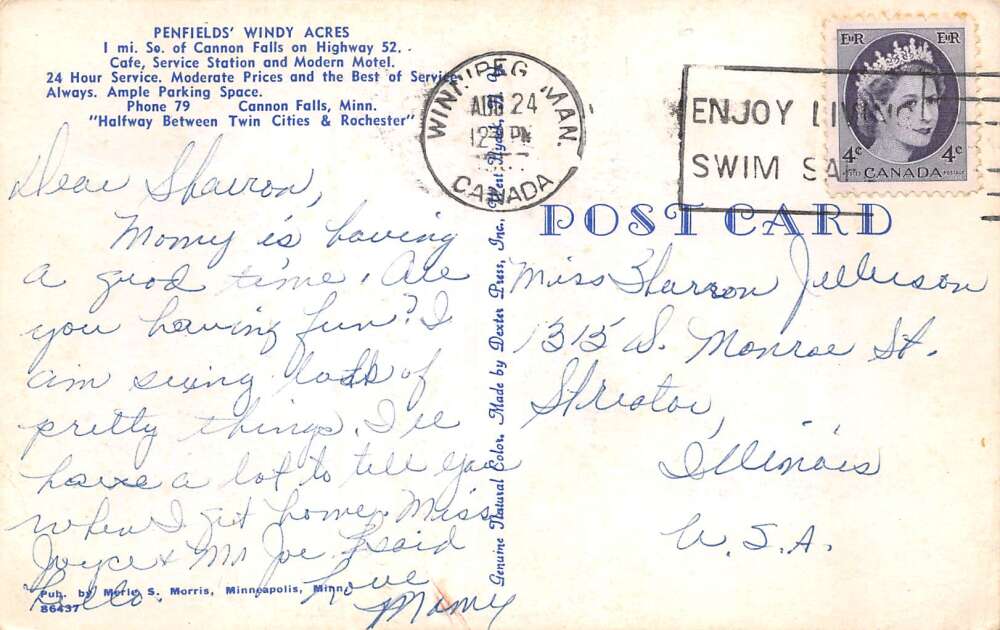 PENFIELDS' WINDY ACRES
1 mi. So. of Cannon Falls on Highway 52.
Cafe, Service Station and Modern Motel.
24 Hour Service. Moderate Prices and the Best of Service
Always. Ample Parking Space.
Phone 79 Cannon Falls, Minn.
"Halfway Between Twin Cities & Rochester"
Dear Sharron,
Momy is having
a good time. Are
you having fun? I
am seeing lots of
pretty things. I'll
have a lot to tell you
when I get home. Miss
Joyce & Mr Joe said
hello.
Love
Momy
Pub. by Merle S. Morris, Minneapolis, Minn.
86437
Genuine Natural Color. Made by Dexter Press, Inc., West Nyack, N. Y.
WINNIPEG MAN.
AUG 24
12 PM
CANADA
ENJOY LIVING
SWIM SA
E II R E II R
4c 4c
POSTES CANADA POSTAGE
POST CARD
Miss Sharron
1315 S. Monroe St.
Streator,
Illinois
U.S.A.